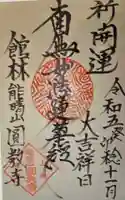 祈開運
令和五癸卯歳十一月
大吉祥日
南無妙法蓮華経
館林
能晴山圓教寺